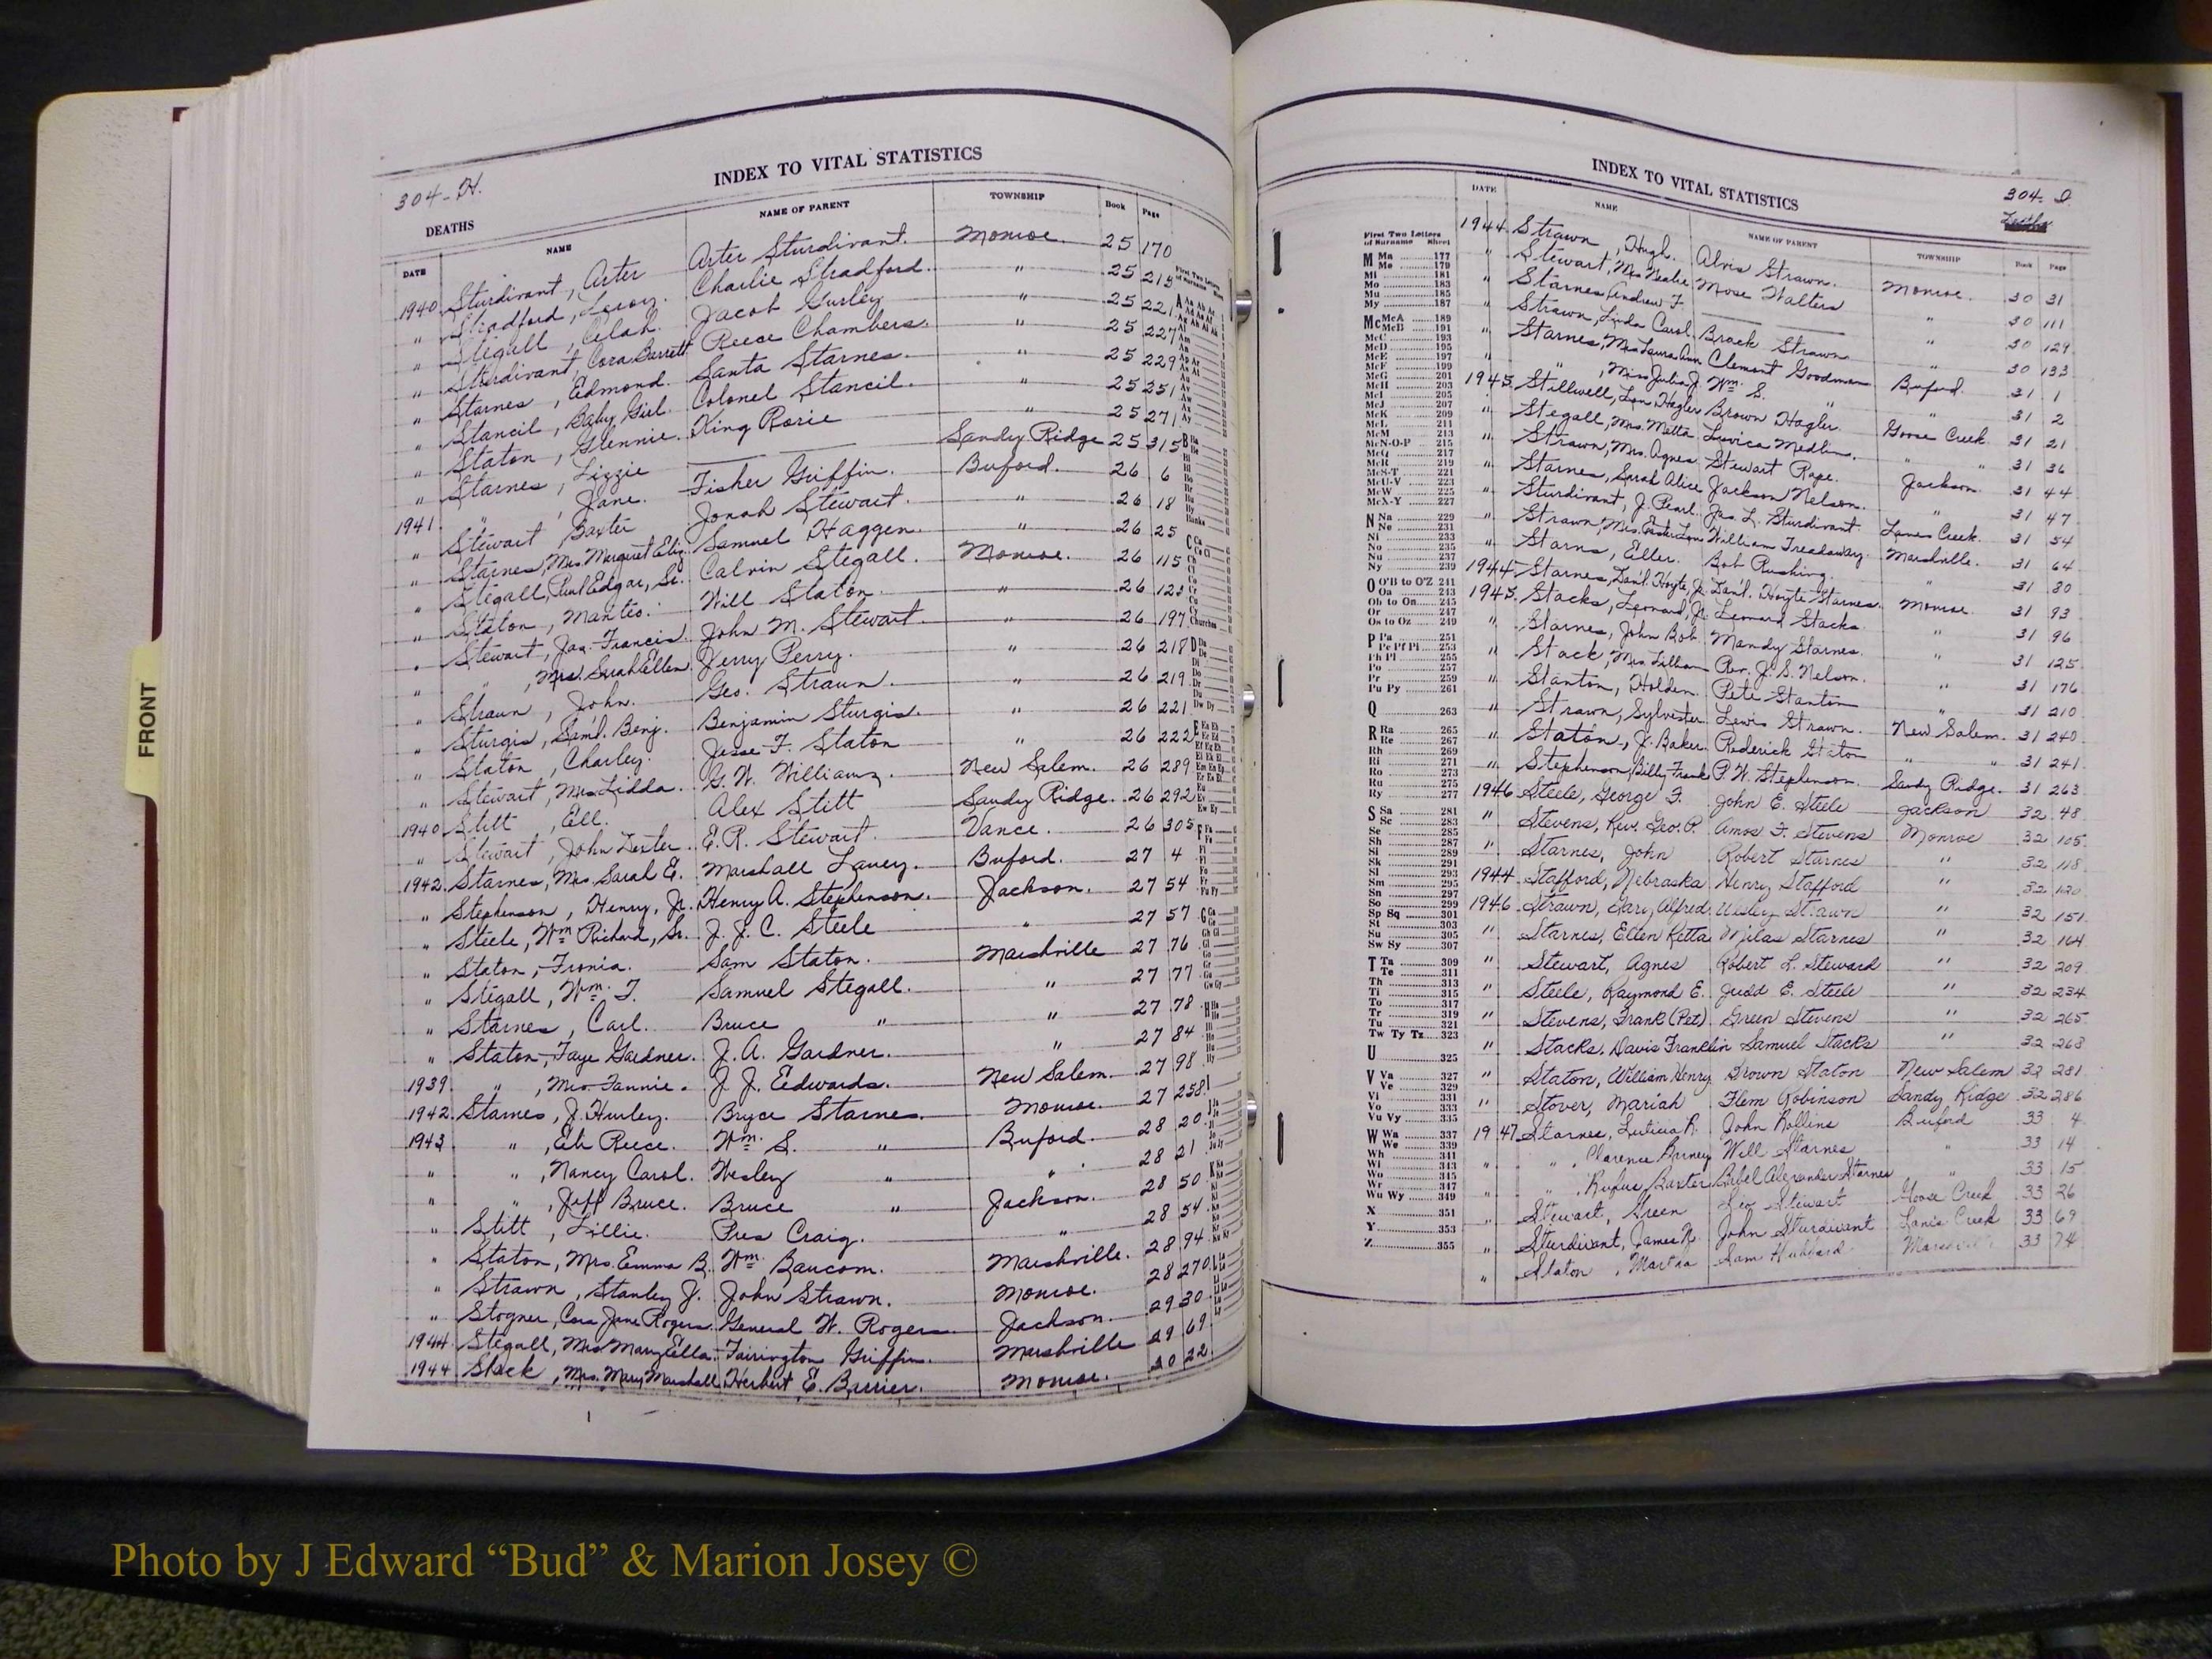 304-H.
INDEX TO VITAL STATISTICS
DEATHS
DATE NAME NAME OF PARENT TOWNSHIP Book Page
1940 Sturdivant, Arter Arter Sturdivant. Monroe. 25 170
" Stradford, Leroy. Charlie Stradford. " 25 215
" Stegall, Celah. Jacob Gurley " 25 221
" Sturdivant, Cora Barrett Reece Chambers. " 25 227
" Starnes, Edmond. Santa Starnes. " 25 229
" Stancil, Baby Girl. Colonel Stancil. " 25 251
" Staton, Glennie. King Rorie " 25 271
" Starnes, Lizzie Sandy Ridge 25 315
1941. " , Jane. Fisher Griffin. Buford. 26 6
" Stewart, Baxter Jonah Stewart. " 26 18
" Starnes, Mrs. Margaret Eliz. Samuel Haggen. " 26 25
" Stegall, Paul Edgar, Sr. Calvin Stegall. Monroe. 26 115
" Staton, Manteo. Will Staton. " 26 123
" Stewart, Jas. Francis. John M. Stewart. " 26 197
" " , Mrs. Sarah Ellen Jerry Perry. " 26 218
" Straun, John. Geo. Straun. " 26 219
" Sturgis, Saml. Benj. Benjamin Sturgis. " 26 221
" Staton, Charley. Jesse F. Staton " 26 222
" Stewart, Mrs. Lidda. G. W. Williams. New Salem. 26 289
1940 Stitt, Ell. Alex Stitt Sandy Ridge. 26 292
" Stewart, John Lexter. E. R. Stewart. Vance. 26 305
1942. Starnes, Mrs Sarah E. Marshall Laney. Buford. 27 4
" Stephenson, Henry, Jr. Henry A. Stephenson. Jackson. 27 54
" Steele, Wm Richard, Sr. J. J. C. Steele " 27 57
" Staton, Fronia. Sam Staton. Marshville 27 76
" Stegall, Wm. T. Samuel Stegall. " 27 77
" Starnes, Carl. Bruce " " 27 78
" Staton, Faye Gardner. J. A. Gardner. " 27 84
1939. " , Mrs. Fannie. J. J. Edwards. New Salem. 27 98
1942. Starnes, J. Hurley. Bryce Starnes. Monroe. 27 258
1943 " , Eli Reece. Wm. S. " Buford. 28 20
" " , Nancy Carol. Wesley " " 28 21
" " , Jeff Bruce. Bruce " Jackson. 28 50
" Stitt, Lillie. Pres Craig. " 28 54
" Staton, Mrs. Emma B. Wm. Baucom. Marshville. 28 94
" Strawn, Stanley J. John Strawn. Monroe. 28 270
" Stogner, Cora Jane Rogers. General W. Rogers. Jackson. 29 30
1944. Stegall, Mrs Mary Ella. Fairington Griffin. Marshville 29 69
1944 Stack, Mrs. Mary Marshall Herbert E. Barrier. Monroe. 30 22
INDEX TO VITAL STATISTICS
304- I.
DATE NAME NAME OF PARENT TOWNSHIP Book Page
1944. Strawn, Hugh. Alvis Strawn. Monroe. 30 31
" Stewart, Mrs Nealie Mose Walters " 30 111
" Starnes Andrew F. " 30 129
" Strawn, Linda Carol Brack Strawn " 30 133
" Starnes, Mrs Laura Ann Clement Goodman Buford. 31 1
" " , Miss Julia J. Wm. S. " " 31 2
1945. Stillwell, Lon Hagler Brown Hagler. Goose Creek. 31 21
" Stegall, Mrs. Metta Luvica Medlin. " " 31 36
" Strawn, Mrs. Agnes Stewart Rape. Jackson. 31 44
" Starnes, Sarah Alice Jackson Nelson. " 31 47
" Sturdivant, J. Pearl. Jas. L. Sturdivant. Lanes Creek. 31 54
" Strawn, Mrs. William Treadaway. Marshville. 31 64
" Starns, Eller. Bob Rushing. " 31 80
1944 Starnes, Dan'l. Hoyte, Jr. Dan'l. Hoyte Starnes. Monroe. 31 93
1945. Stacks, Leonard, Jr. Leonard Stacks. " 31 96
" Starnes, John Bob. Mandy Starnes. " 31 125
" Stack, Mrs. Lillian Rev. J. S. Nelson. " 31 176
" Stanton, Holden. Pete Stanton " 31 210
" Strawn, Sylvester Lewis Strawn. New Salem. 31 240
" Staton, J. Baker Roderick Staton " " 31 241
" Stephenson, Billy Frank P. W. Stephenson. Sandy Ridge. 31 263
1946 Steele, George F. John E. Steele Jackson 32 48
" Stevens, Rev. Geo. P. Amos F. Stevens Monroe 32 105
" Starnes, John Robert Starnes " 32 118
1944 Stafford, Nebraska Henry Stafford " 32 120
1946 Strawn, Gary Alfred Wesley Strawn " 32 151
" Starnes, Ellen Retta Milas Starnes " 32 164
" Stewart, Agnes Robert L. Steward " 32 209
" Steele, Raymond E. Judd E. Steele " 32 234
" Stevens, Frank (Pet) Green Stevens " 32 265
" Stacks, Davis Franklin Samuel Stacks " 32 268
" Staton, William Henry Brown Staton New Salem 32 281
" Stover, Mariah Flem Robinson Sandy Ridge 32 286
1947 Starnes, Luticia R. John Rollins Buford 33 4
" " , Clarence Burney Will Starnes " 33 14
" " , Rufus Baxter Abel Alexander Starnes " 33 15
" Stewart, Green Leo Stewart Goose Creek 33 26
" Sturdivant, James N. John Sturdivant Lanes Creek 33 69
" Staton, Martha Sam Hubbard Marshville 33 74
First Two Letters of Surname Sheet
M Ma 177
Me 179
Mi 181
Mo 183
Mu 185
My 187
Mc McA 189
McB 191
McC 193
McD 195
McE 197
McF 199
McG 201
McH 203
McI 205
McJ 207
McK 209
McL 211
McM 213
McN-O-P 215
McQ 217
McR 219
McS-T 221
McU-V 223
McW 225
McX-Y 227
N Na 229
Ne 231
Ni 233
No 235
Nu 237
Ny 239
O O'B to O'Z 241
Oa 243
Ob to On 245
Or 247
Os to Oz 249
P Pa 251
Pe Pf Pi 253
Ph Pl 255
Po 257
Pr 259
Pu Py 261
Q 263
R Ra 265
Re 267
Rh 269
Ri 271
Ro 273
Ru 275
Ry 277
S Sa 281
Sc 283
Se 285
Sh 287
Si 289
Sk 291
Sl 293
Sm 295
Sn 297
So 299
Sp Sq 301
St 303
Su 305
Sw Sy 307
T Ta 309
Te 311
Th 313
Ti 315
To 317
Tr 319
Tu 321
Tw Ty Tz 323
U 325
V Va 327
Ve 329
Vi 331
Vo 333
Vu Vy 335
W Wa 337
We 339
Wh 341
Wi 343
Wo 345
Wr 347
Wu Wy 349
X 351
Y 353
Z 355
FRONT
Photo by J Edward “Bud” & Marion Josey ©